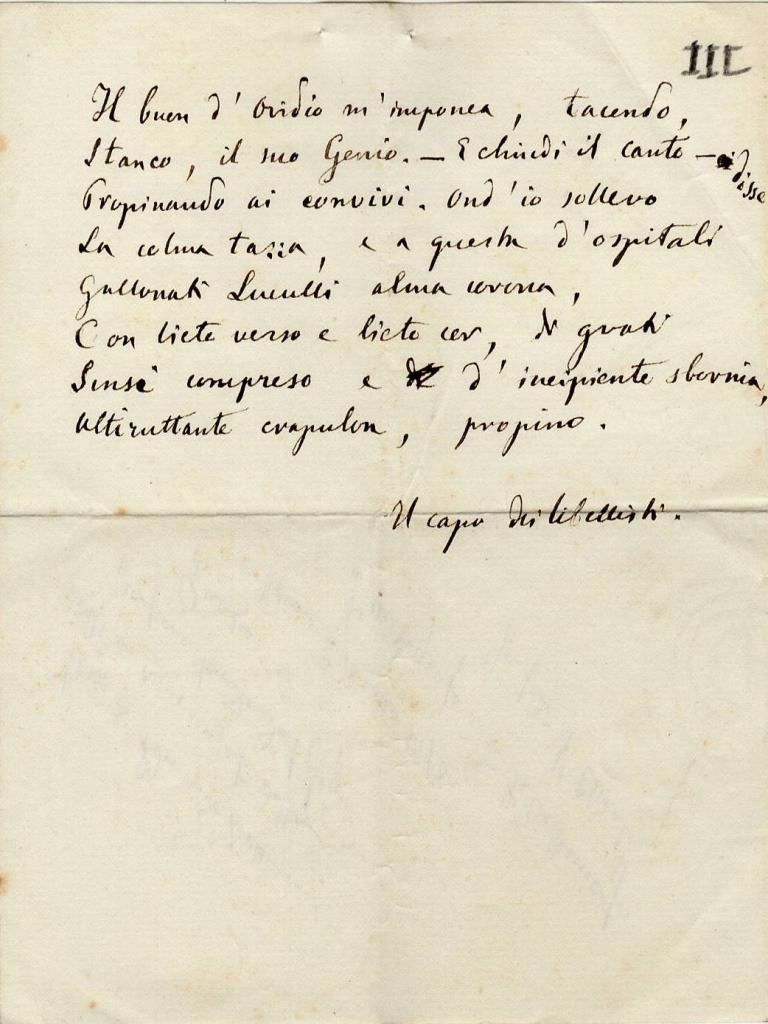 III
Il buon d'Ovidio m'imponea, tacendo,
Stanco, il suo Genio. — E chiudi il canto — disse
Propinando ai convivi. Ond'io sollevo
La colma tazza, e a questa d'ospitali
Gallonati Luculli alma corona,
Con lieto verso e lieto cor, di grati
Sensi compreso e d'incipiente sbornia,
Altiruttante crapulon, propino.
Il capo dei libellisti.